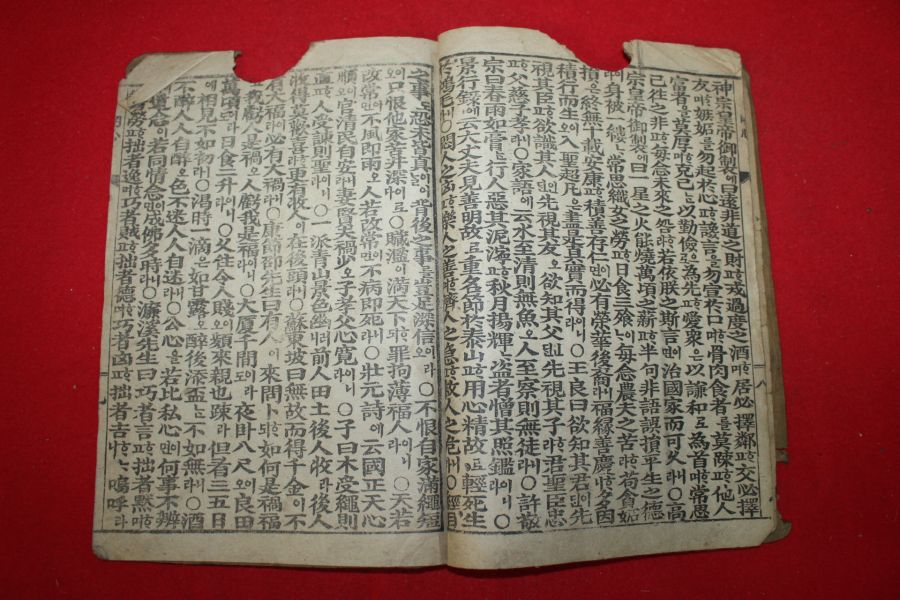 神宗皇帝御製에曰遠非道之財하며戒過度之酒하며居必擇鄰하며交必擇
友하며嫉妬를勿起於心하며讒言을勿宣於口하며骨肉貧者를莫疎하며他人
富者를莫厚하며克己는以勤儉으로爲先하며愛衆은以謙和로爲首하며常思
已往之非하며每念未來之咎하라若依朕之斯言이면治國家而可久라니○高
宗皇帝御製에曰一星之火도能燒萬頃之薪하고半句非語도誤損平生之德
身被一縷나常思織女之勞하며日食三飱이나每念農夫之苦하라苟貪妬
損은終無十載安康하고積善存仁이면必有榮華後裔라니福緣善慶은多因
積行而生이오入聖超凡은盡是眞實而得이라○王良曰欲知其君인댄先
視其臣하고欲識其人인댄先視其友하고欲知其父인댄先視其子하라君聖臣忠
하고父慈子孝라니○家語에云水至淸則無魚오人至察則無徒라니○許敬
宗曰春雨如膏나行人은惡其泥濘하고秋月揚輝나盜者는憎其照鑑이라니○
景行錄에云大丈夫見善明故로重名節於泰山하고用心精故로輕死生
於鴻毛니라○悶人之凶하며樂人之善하며濟人之急하며救人之危니라○經目
之事도恐未皆眞이어背後之事를豈足深信이리오○不恨自家蒲繩短
이오只恨他家苦井深이로○贓濫이滿天下하되罪拘薄福人이라○天若
改常이면不風卽雨오人若改常이면不病卽死라니○壯元詩에云國正天心
順이오官淸民自安이라妻賢夫禍少오子孝父心寬이라니○子曰木受繩則
直하고人受諫則聖이라니○一派靑山景色幽러니前人田土後人收라後人
收得莫歡喜하라更有收人이在後頭라니○蘇東坡曰無故而得千金이면不
有大福이라必有大禍라니○康節邵先生曰有人이來問卜하되如何是禍福
고我虧人是禍오人虧我是福이라○大廈千間이라도夜臥八尺이오良田
萬頃이라도日食二升이라○久住令人賤이오頻來親也疎라但看三五日
에相見不如初라니○渴時一滴은如甘露오醉後添盃는不如無라니○酒
不醉人人自醉오色不迷人人自迷라니○公心을若比私心이면何事不辨
道念을若同情念이면成佛多時라니○濂溪先生曰巧者言하고拙者默하며
巧者勞하고拙者逸하며巧者賊하고拙者德하며巧者凶하고拙者吉이니嗚呼라